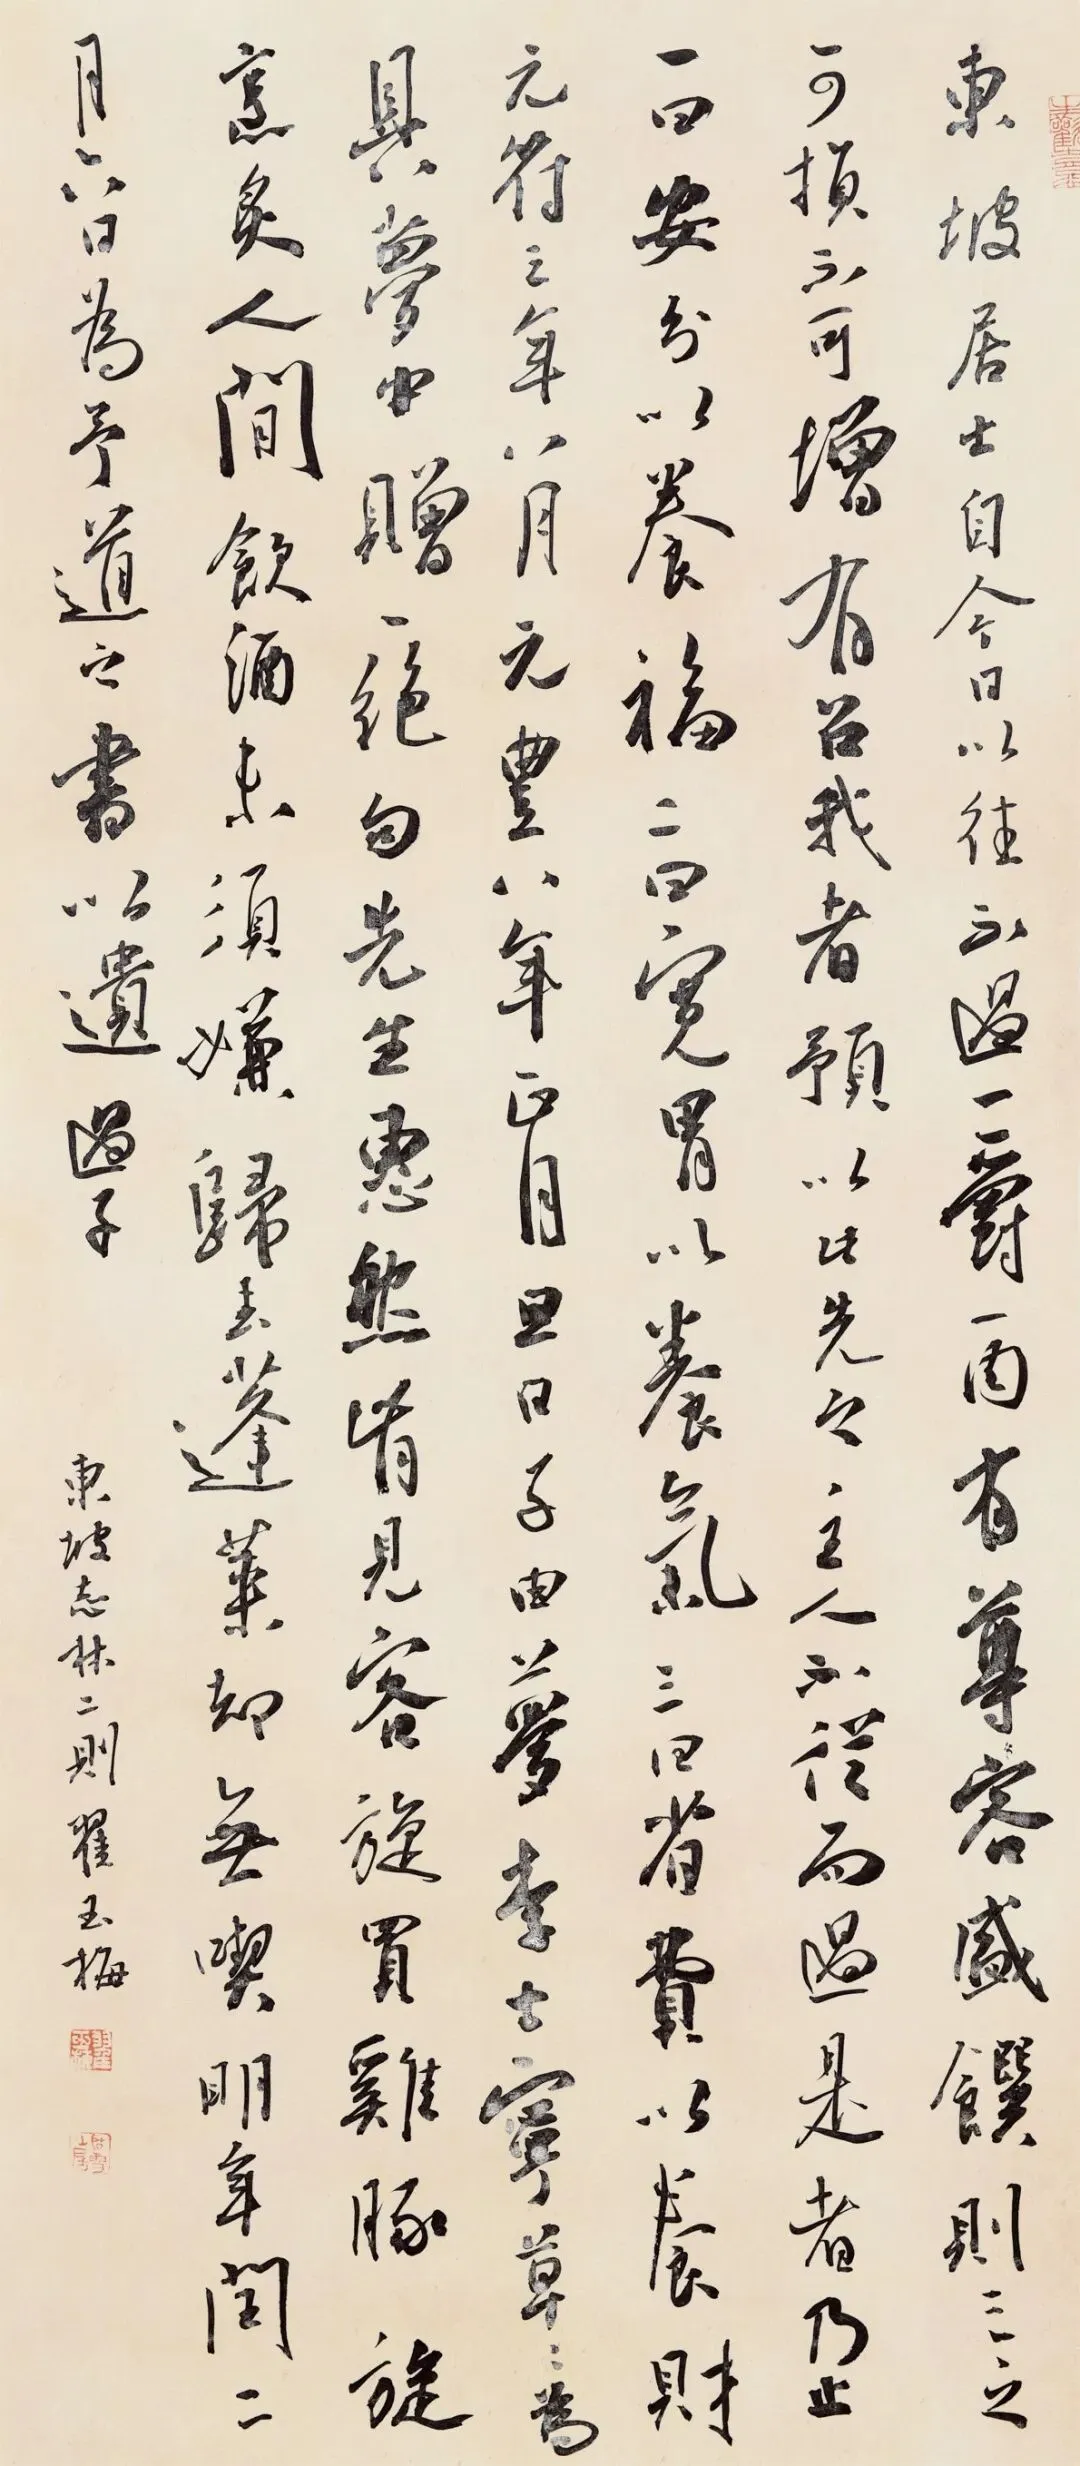 東坡居士自今日以往不過一爵一肉有尊客盛饌則三之
可損不可增有召我者預以此先之主人不從而過是者乃止
一曰安分以養福二曰寬胃以養氣三曰省費以養財
元符三年八月元豐八年正月旦日子由夢李士寧草草為
具夢中贈一絕句先生惠然肯見客旋買雞豚旋
烹炙人間飲酒未須嫌歸去蓬萊却無喫明年閏二
月六日為予道之書以遺過子
東坡志林二則翟玉梅